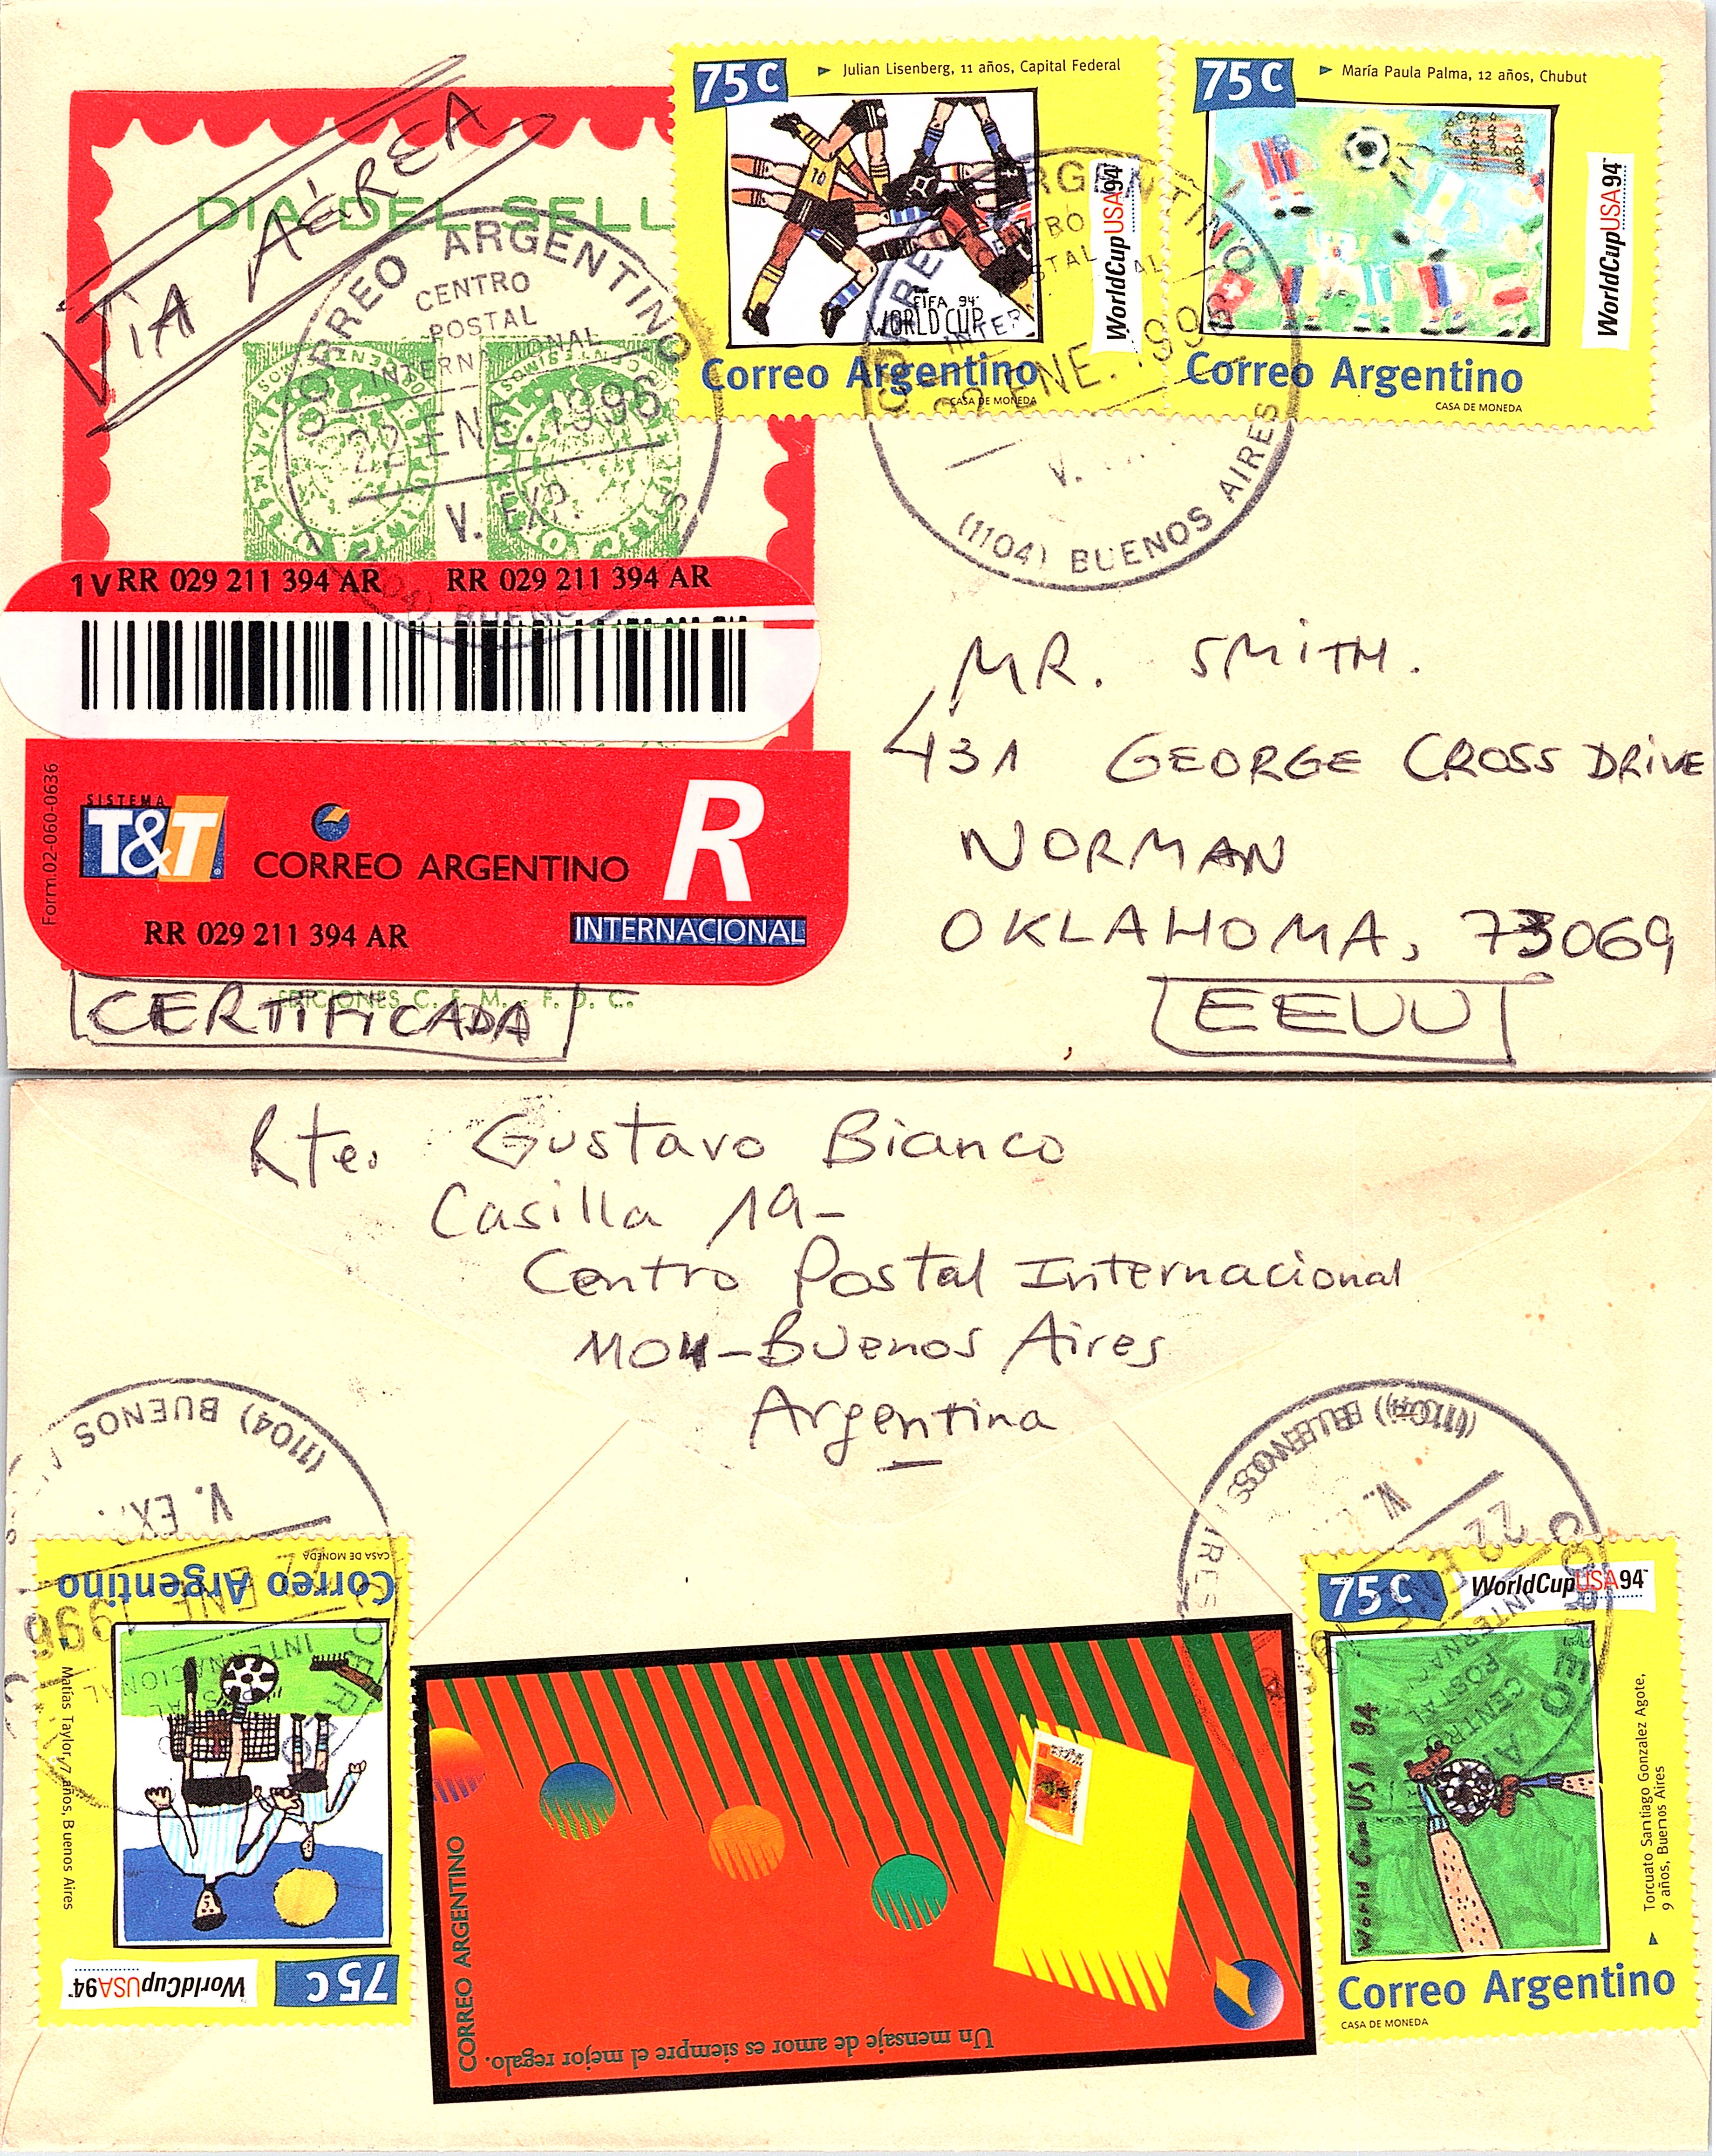 75 C
Julian Lisenberg, 11 años, Capital Federal
FIFA 94'
WORLD CUP
WorldCupUSA94
Correo Argentino
CASA DE MONEDA
75 C
María Paula Palma, 12 años, Chubut
WorldCupUSA94
Correo Argentino
CASA DE MONEDA
VIA AÉREA
DIA DEL SELL
CORREO ARGENTINO
CENTRO
POSTAL
INTERNACIONAL
22 ENE. 1996
V. EXP.
CORREO ARGENTINO
INTER
22 ENE. 1996
V.
(1104) BUENOS AIRES
1V RR 029 211 394 AR RR 029 211 394 AR
Form.02-060-0636
SISTEMA
T&T
CORREO ARGENTINO
R
INTERNACIONAL
RR 029 211 394 AR
EDICIONES C. E. M. - F. D. C.
CERTIFICADA
MR. SMITH.
431 GEORGE CROSS DRIVE
NORMAN
OKLAHOMA, 73069
EEUU
Rte. Gustavo Bianco
Casilla 19-
Centro Postal Internacional
1104-Buenos Aires
Argentina
(1104) BUENOS
V. EXP.
22 ENE 1996
INTERNACIONAL
CASA DE MONEDA
Correo Argentino
Matías Taylor, 7 años, Buenos Aires
WorldCupUSA94
75 C
CORREO ARGENTINO
Un mensaje de amor es siempre el mejor regalo.
(1104) BUENOS AIRES
V.
22
CORREO
CENTRO
POSTAL
75 C
WorldCupUSA94
World Cup USA 94
Torcuato Santiago Gonzalez Agote,
9 años, Buenos Aires
Correo Argentino
CASA DE MONEDA